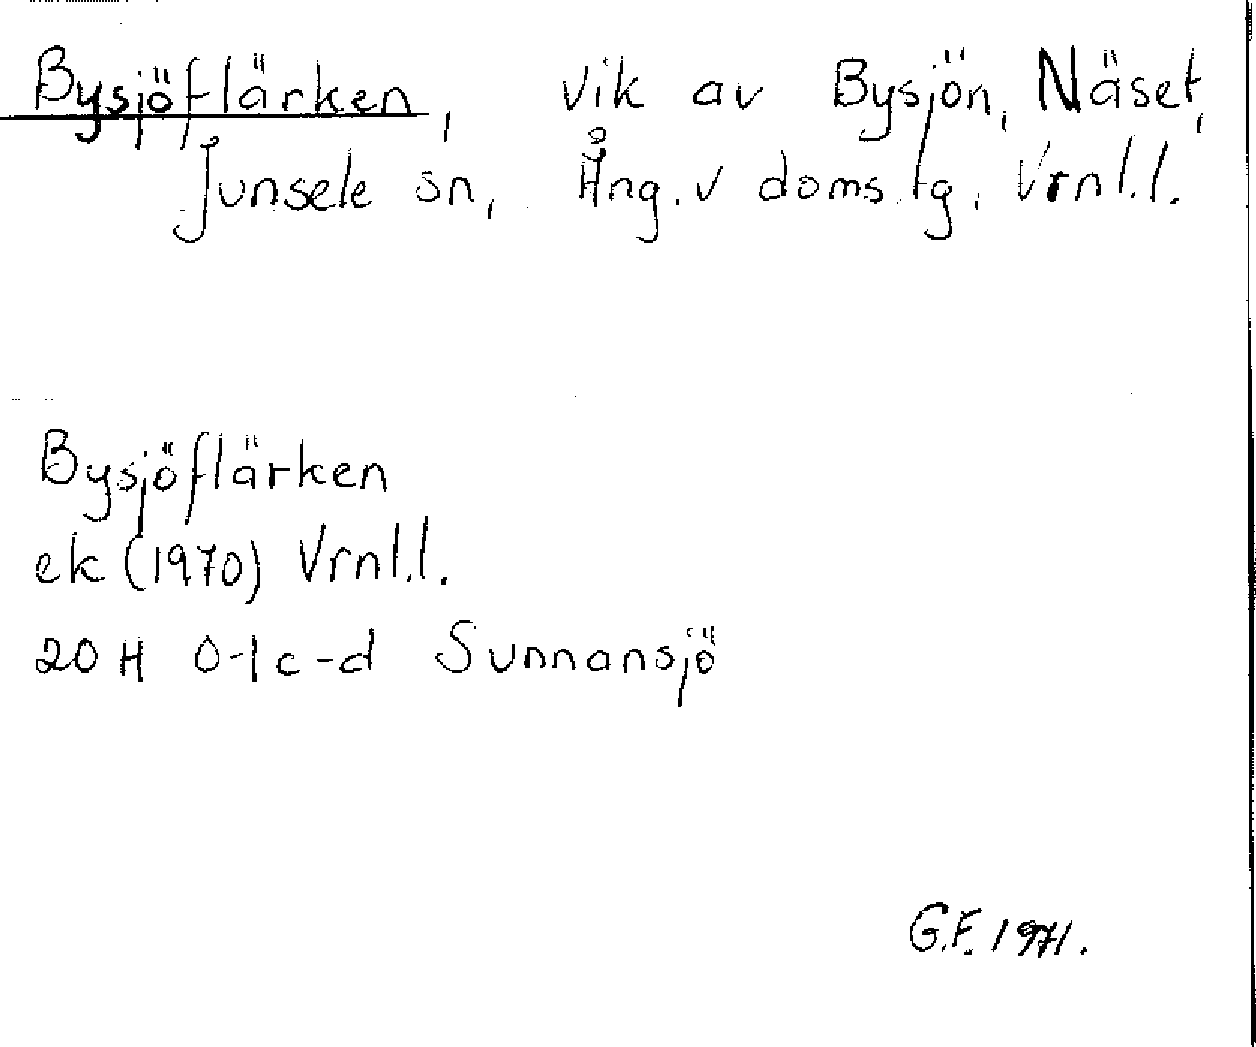 Bysjöflärken, vik av Bysjön, Näset,
Junsele sn, Ång. v doms.tg, Vrnl.l.
Bysjöflärken
ek (1970) Vrnl.l.
20 H 0-1c-d Sunnansjö
G.F. 1971.